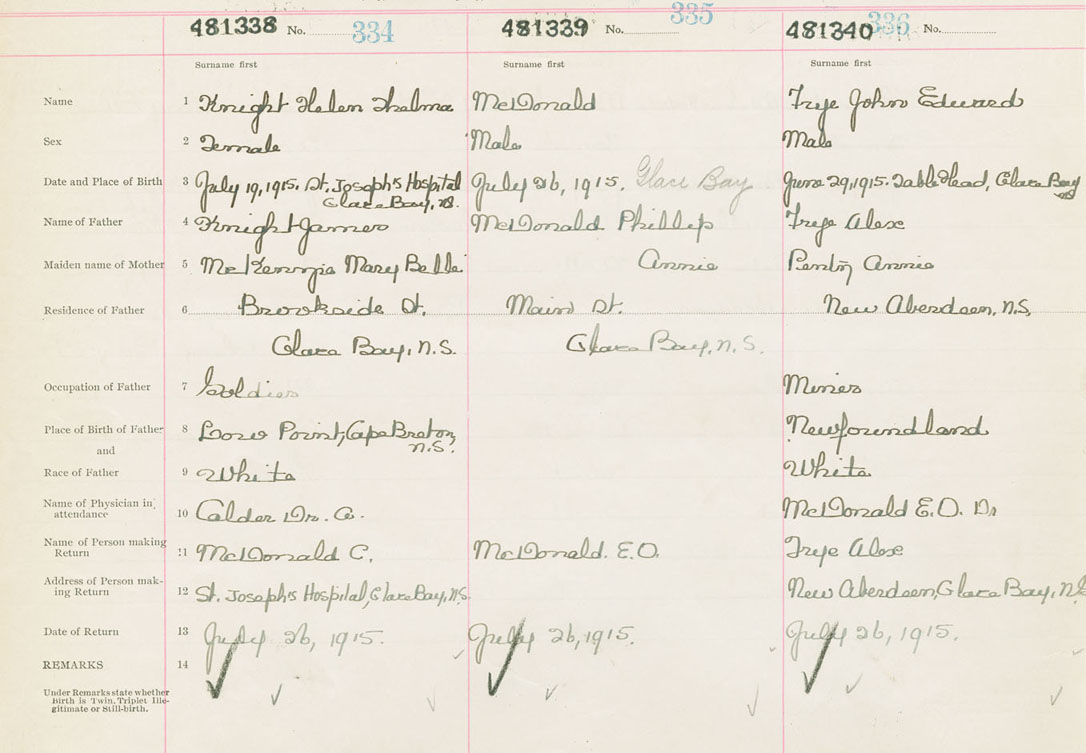 481338 No. 334 481339 No. 335 481340 336 No.
Surname first Surname first Surname first
Name 1 Knight Helen Thelma McDonald Frye John Edward
Sex 2 Female Male Male
Date and Place of Birth 3 July 19, 1915. St. Joseph's Hospital July 26, 1915. Glace Bay June 29, 1915. Table Head, Glace Bay
Glace Bay, N.S.
Name of Father 4 Knight James McDonald Phillip Frye Alex
Maiden name of Mother 5 McKenzie Mary Belle Annie Annie
Residence of Father 6 Brookside St. Main St. New Aberdeen, N.S.
Glace Bay, N.S. Glace Bay, N.S.
Occupation of Father 7 Soldier Miner
Place of Birth of Father 8 Low Point, Cape Breton, Newfoundland
N.S.
and
Race of Father 9 White White
Name of Physician in
attendance 10 Calder Dr. A. McDonald E.O. Dr
Name of Person making
Return 11 McDonald C. McDonald. E.O. Frye Alex
Address of Person mak-
ing Return 12 St. Joseph's Hospital, Glace Bay, N.S. New Aberdeen, Glace Bay, N.S
Date of Return 13 July 26, 1915. July 26, 1915. July 26, 1915.
REMARKS 14
Under Remarks state whether
Birth is Twin, Triplet Ille-
gitimate or Still-birth.